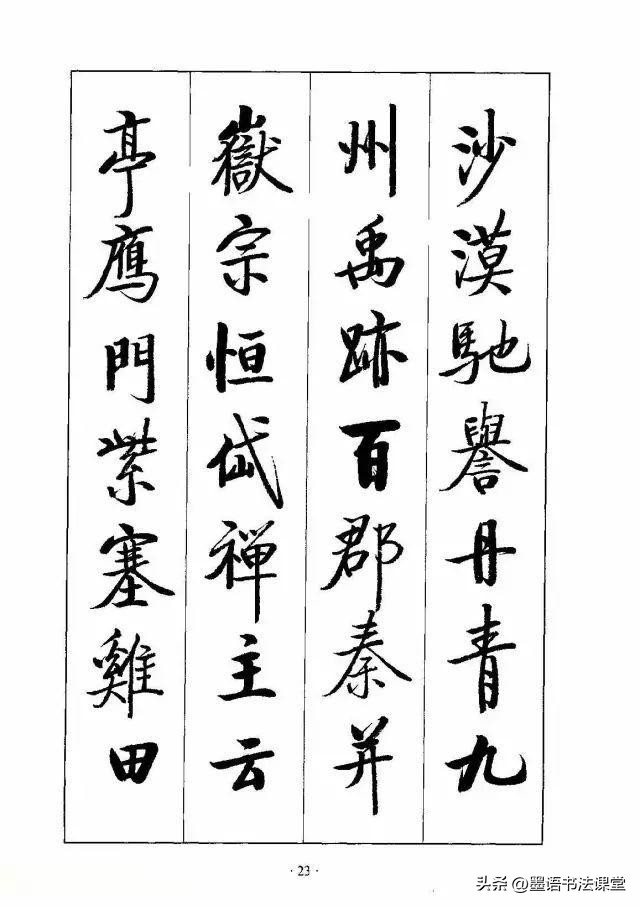 沙漠馳譽丹青九
州禹跡百郡秦并
嶽宗恒岱禪主云
亭鴈門紫塞雞田
· 23 ·
头条 @墨语书法课堂